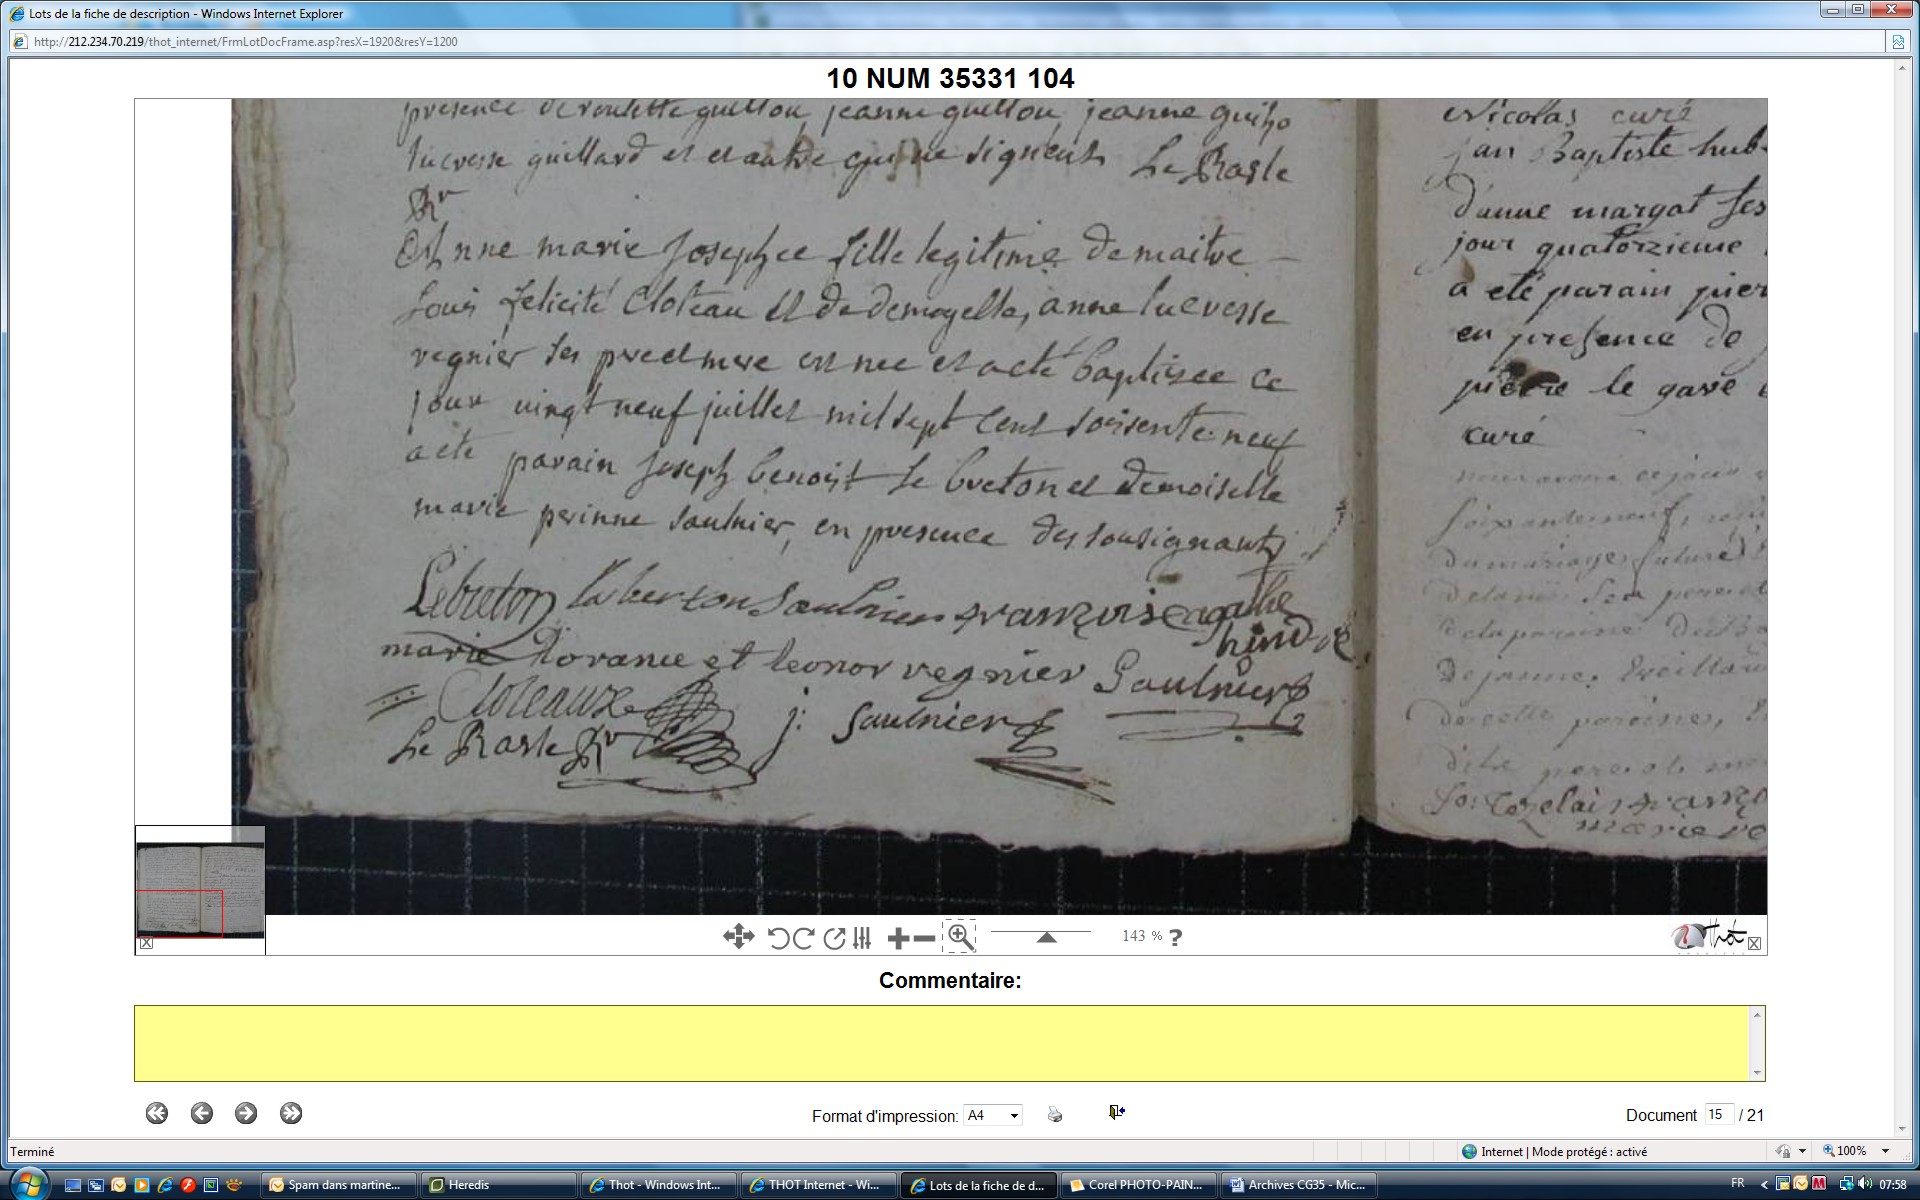 Lots de la fiche de description - Windows Internet Explorer
http://212.234.70.219/thot_internet/FrmLotDocFrame.asp?resX=1920&resY=1200
10 NUM 35331 104
presence de roulette guillou, jeanne guillou, jeanne guiho
lucresse guillard et et autre qui ne signent Le Rasle
Rr
Anne marie Josephee fille legitime de maitre -
louis felicité Cloteau et de demoyelle, anne lucresse
regnier ses pere et mere est nee et a eté baptisee ce
jour vingt neuf juillet mil sept cent soissente neuf
a ete parain Joseph benoist le breton et demoiselle
marie perinne saulnier, en presence des sousignants
Lebreton Saulnier françoise agathe
hindré
marie dorance et leonor regnier Saulnier
Cloteaux j: Saulnier
Le Rasle Rr
Nicolas curé
jan Baptiste hub
d'anne margat ses
jour quatorzieme
a eté parain pier
en presence de
pierre le gave
curé
nous avons
soixante neuf,
du mariage futur
de jeanne
de cette paroisse,
marie re
143 % ?
Thot
Commentaire:
Format d'impression: A4
Document 15 / 21
Terminé
Internet | Mode protégé : activé
100%
Spam dans martine...
Heredis
Thot - Windows Int...
THOT Internet - Wi...
Lots de la fiche de d...
Corel PHOTO-PAIN...
Archives CG35 - Mic...
FR
07:58